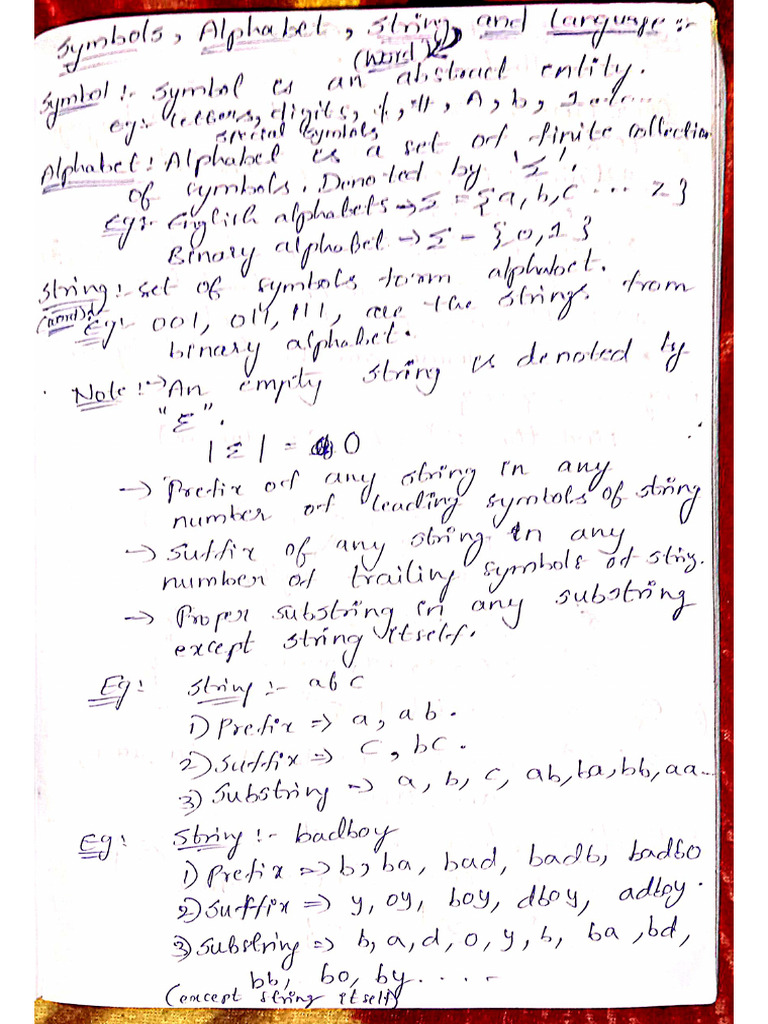 Symbols, Alphabet, String, and Language :-
(Word)
Symbol :- Symbol is an abstract entity.
eg:- letters, digits, *, #, A, b, 1 ......
special symbols
Alphabet : Alphabet is a set of finite collection
of symbols. Denoted by 'Σ'.
Eg:- English alphabets → Σ = {a, b, c ... z}
Binary alphabet → Σ - {0, 1}
String :- set of symbols form alphabet.
(word)
Eg:- 001, 011, 111, are the string. from
binary alphabet.
Note :→ An empty string is denoted by
"Σ".
|Σ| = 0
→ Prefix of any string in any
number of leading symbols of string
→ Suffix of any string in any
number of trailing symbols of string.
→ Proper substring in any substring
except string itself.
Eg: String :- abc
1) Prefix ⇒ a, ab.
2) Suffix ⇒ c, bc.
3) Substring ⇒ a, b, c, ab, ba, bb, aa...
Eg: String :- badboy
1) Prefix ⇒ b, ba, bad, badb, badbo
2) Suffix ⇒ y, oy, boy, dboy, adboy.
3) Substring ⇒ b, a, d, o, y, b, ba, bd,
bb, bo, by.....
(except string itself)